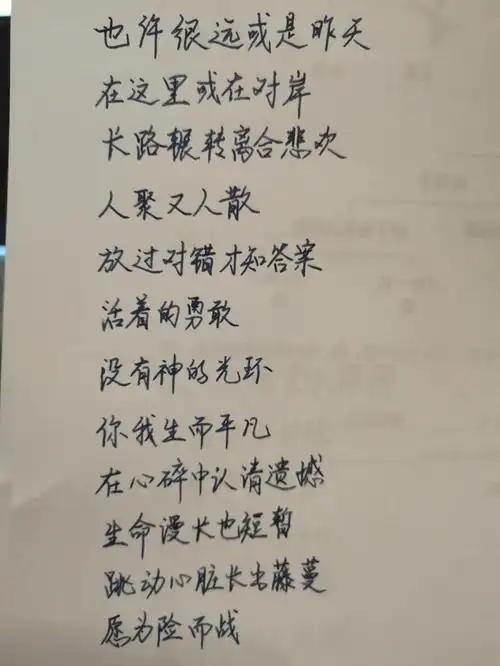 也许很远或是昨天
在这里或在对岸
长路辗转离合悲欢
人聚又人散
放过对错才知答案
活着的勇敢
没有神的光环
你我生而平凡
在心碎中认清遗憾
生命漫长也短暂
跳动心脏长出藤蔓
愿为险而战